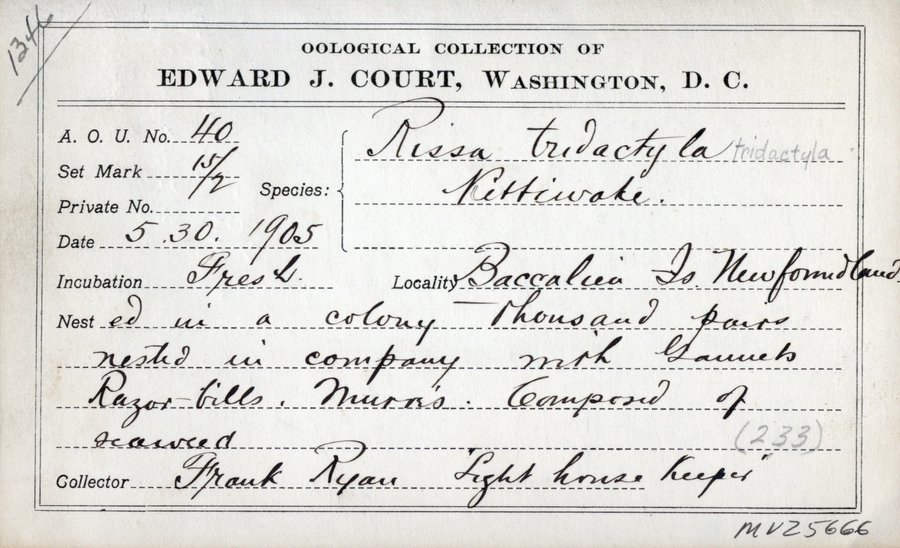 1346
OOLOGICAL COLLECTION OF
EDWARD J. COURT, WASHINGTON, D. C.
A. O. U. No. 40
Set Mark 15/2
Private No.
Date 5.30. 1905
Species: Rissa tridactyla tridactyla
Kittiwake.
Incubation Fresh. Locality Baccalieu Is Newfoundland.
Nest ed in a colony thousand pairs
nested in company with Gannets
Razor-bills. Murres. Composed of
seaweed (233)
Collector Frank Ryan "Light house Keeper"
MVZ5666